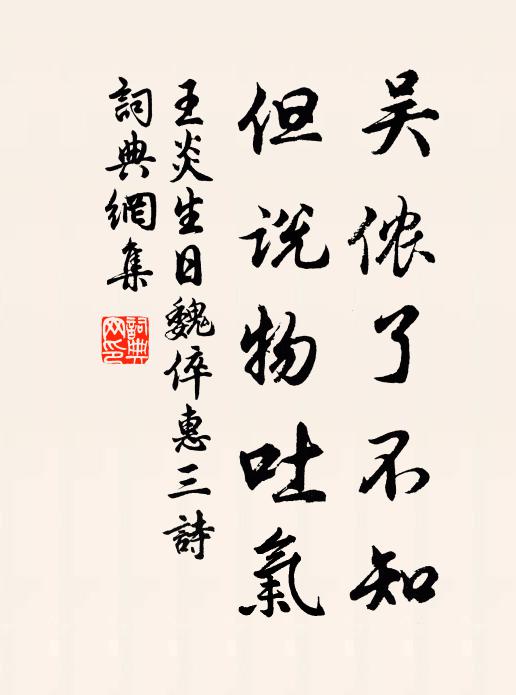 吴侬了不知
但说物吐氣
王炎生日魏倅惠三詩
詞典網集
詞典网印